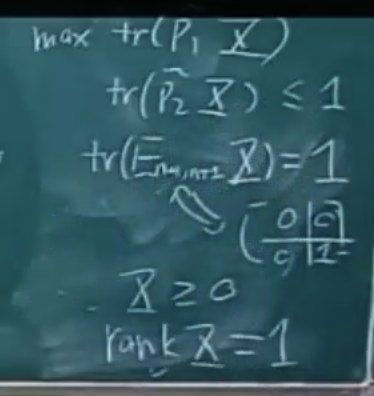 max tr(P₁ X)
tr(P̃₂ X) ≤ 1
tr(Eₙ₊₁,ₙ₊₁ X) = 1
(0|0
0|1
X ≥ 0
rank X = 1